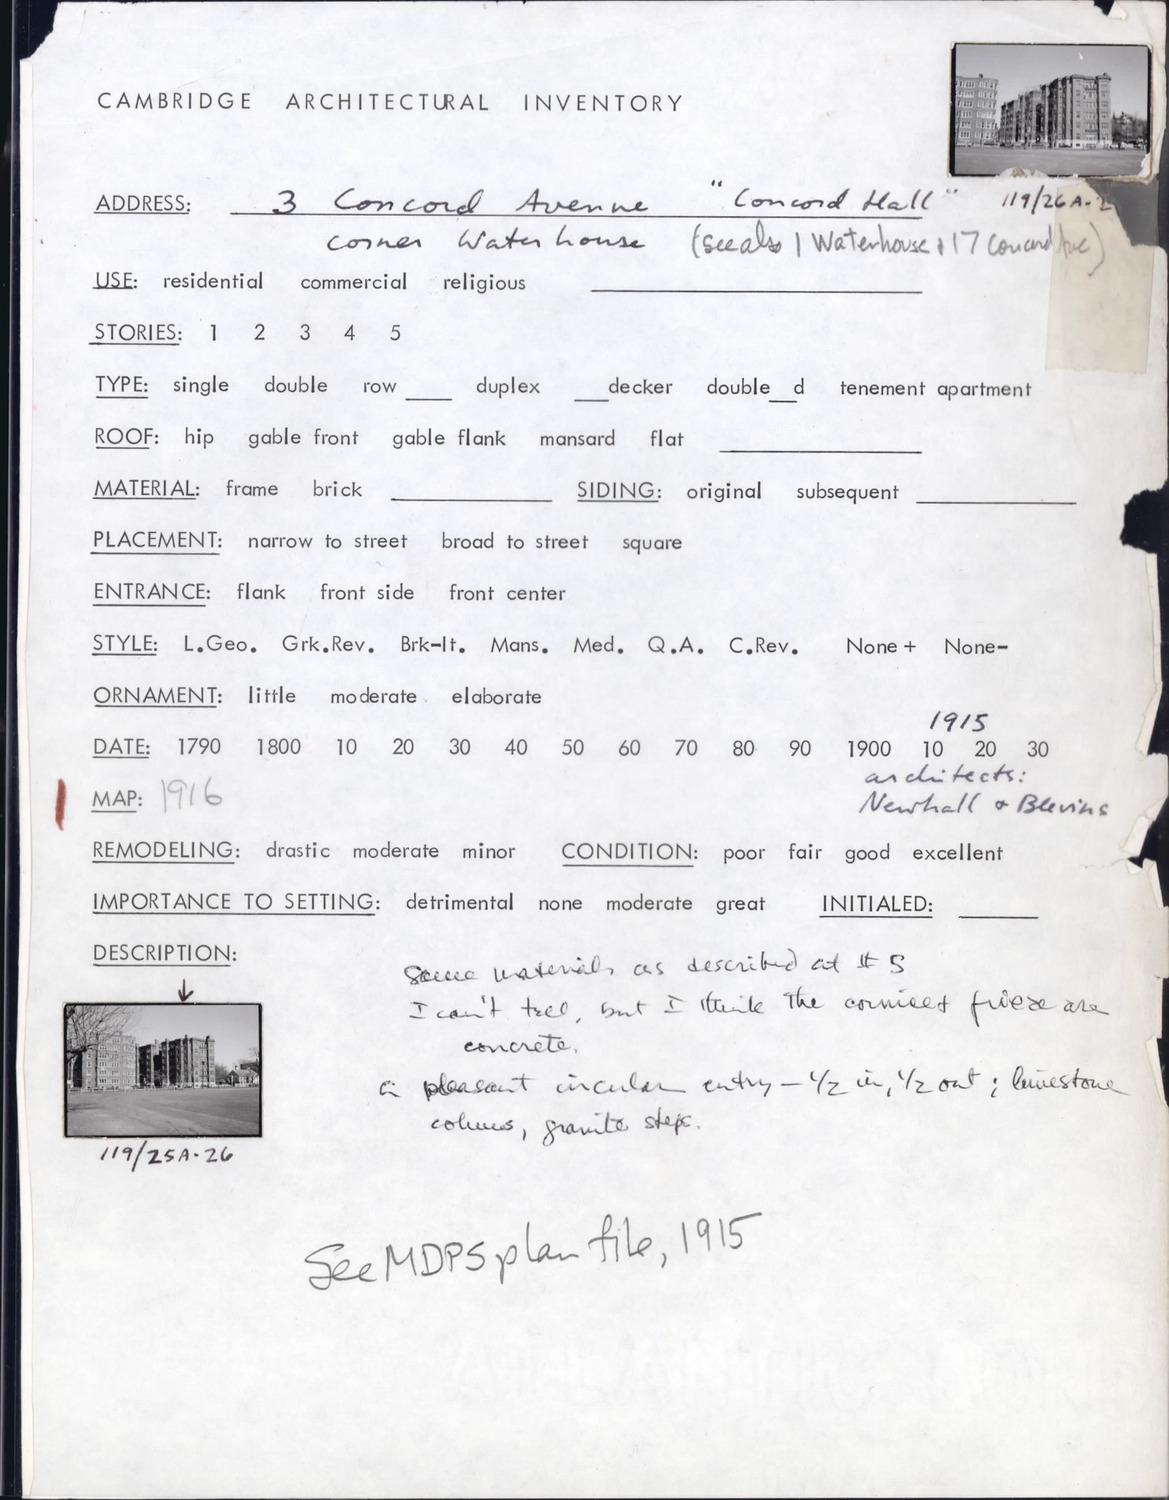 CAMBRIDGE ARCHITECTURAL INVENTORY
ADDRESS: 3 Concord Avenue "Concord Hall"
119/26A-2
corner Waterhouse (See also 1 Waterhouse + 17 Concord Ave)
USE: residential commercial religious
STORIES: 1 2 3 4 5
TYPE: single double row ___ duplex ___decker double__d tenement apartment
ROOF: hip gable front gable flank mansard flat
MATERIAL: frame brick SIDING: original subsequent
PLACEMENT: narrow to street broad to street square
ENTRANCE: flank front side front center
STYLE: L.Geo. Grk.Rev. Brk-It. Mans. Med. Q.A. C.Rev. None + None-
ORNAMENT: little moderate elaborate
1915
DATE: 1790 1800 10 20 30 40 50 60 70 80 90 1900 10 20 30
architects:
MAP: 1916
Newhall & Blevins
REMODELING: drastic moderate minor CONDITION: poor fair good excellent
IMPORTANCE TO SETTING: detrimental none moderate great INITIALED:
DESCRIPTION:
Same materials as described at # 5
I can't tell, but I think the cornice + frieze are
concrete.
a pleasant circular entry - 1/2 in, 1/2 out ; limestone
colums, granite steps.
119/25A-26
See MDPS plan file, 1915